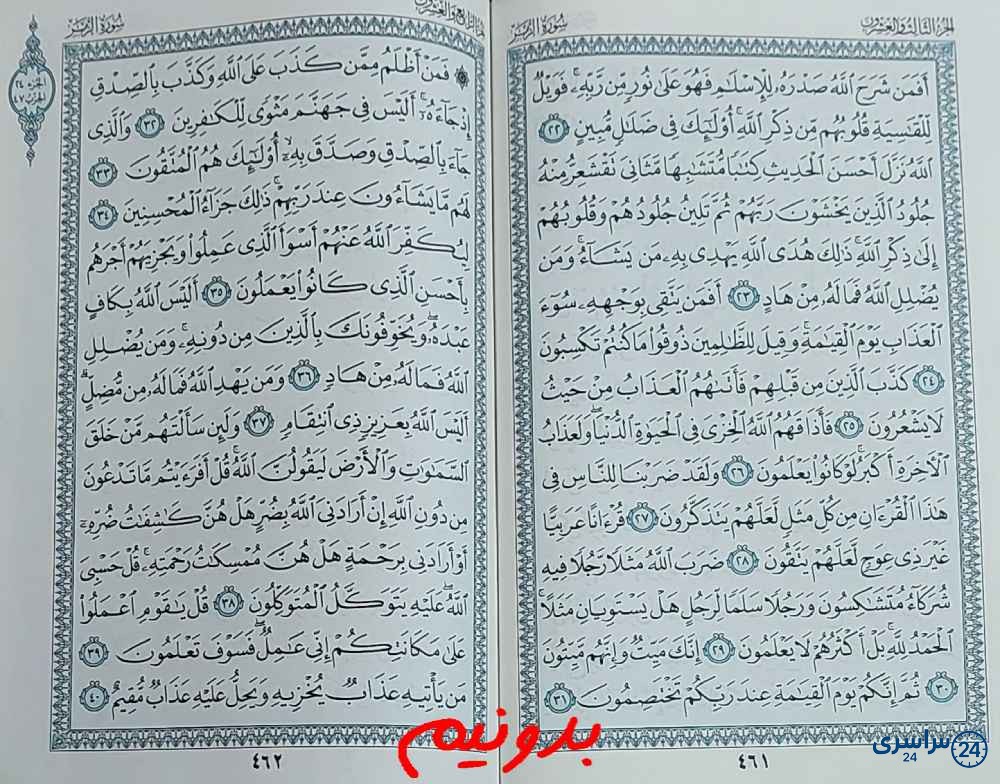 الجزء الثالث والعشرون
سورة الزمر
أَفَمَن شَرَحَ ٱللَّهُ صَدْرَهُۥ لِلْإِسْلَٰمِ فَهُوَ عَلَىٰ نُورٍ مِّن رَّبِّهِۦ ۚ فَوَيْلٌ
لِّلْقَٰسِيَةِ قُلُوبُهُم مِّن ذِكْرِ ٱللَّهِ ۚ أُو۟لَٰٓئِكَ فِى ضَلَٰلٍ مُّبِينٍ ٢٢
ٱللَّهُ نَزَّلَ أَحْسَنَ ٱلْحَدِيثِ كِتَٰبًا مُّتَشَٰبِهًا مَّثَانِىَ تَقْشَعِرُّ مِنْهُ
جُلُودُ ٱلَّذِينَ يَخْشَوْنَ رَبَّهُمْ ثُمَّ تَلِينُ جُلُودُهُمْ وَقُلُوبُهُمْ
إِلَىٰ ذِكْرِ ٱللَّهِ ۚ ذَٰلِكَ هُدَى ٱللَّهِ يَهْدِى بِهِۦ مَن يَشَآءُ ۚ وَمَن
يُضْلِلِ ٱللَّهُ فَمَا لَهُۥ مِنْ هَادٍ ٢٣ أَفَمَن يَتَّقِى بِوَجْهِهِۦ سُوٓءَ
ٱلْعَذَابِ يَوْمَ ٱلْقِيَٰمَةِ ۚ وَقِيلَ لِلظَّٰلِمِينَ ذُوقُوا۟ مَا كُنتُمْ تَكْسِبُونَ
٢٤ كَذَّبَ ٱلَّذِينَ مِن قَبْلِهِمْ فَأَتَىٰهُمُ ٱلْعَذَابُ مِنْ حَيْثُ
لَا يَشْعُرُونَ ٢٥ فَأَذَاقَهُمُ ٱللَّهُ ٱلْخِزْىَ فِى ٱلْحَيَوٰةِ ٱلدُّنْيَا ۖ وَلَعَذَابُ
ٱلْءَاخِرَةِ أَكْبَرُ ۚ لَوْ كَانُوا۟ يَعْلَمُونَ ٢٦ وَلَقَدْ ضَرَبْنَا لِلنَّاسِ فِى
هَٰذَا ٱلْقُرْءَانِ مِن كُلِّ مَثَلٍ لَّعَلَّهُمْ يَتَذَكَّرُونَ ٢٧ قُرْءَانًا عَرَبِيًّا
غَيْرَ ذِى عِوَجٍ لَّعَلَّهُمْ يَتَّقُونَ ٢٨ ضَرَبَ ٱللَّهُ مَثَلًا رَّجُلًا فِيهِ
شُرَكَآءُ مُتَشَٰكِسُونَ وَرَجُلًا سَلَمًا لِّرَجُلٍ هَلْ يَسْتَوِيَانِ مَثَلًا ۚ
ٱلْحَمْدُ لِلَّهِ ۚ بَلْ أَكْثَرُهُمْ لَا يَعْلَمُونَ ٢٩ إِنَّكَ مَيِّتٌ وَإِنَّهُم مَّيِّتُونَ
٣٠ ثُمَّ إِنَّكُمْ يَوْمَ ٱلْقِيَٰمَةِ عِندَ رَبِّكُمْ تَخْتَصِمُونَ ٣١
٤٦١
الجزء الرابع والعشرون
سورة الزمر
الجزء ٢٤
الحزب ٤٧
فَمَنْ أَظْلَمُ مِمَّن كَذَبَ عَلَى ٱللَّهِ وَكَذَّبَ بِٱلصِّدْقِ
إِذْ جَآءَهُۥٓ ۚ أَلَيْسَ فِى جَهَنَّمَ مَثْوًى لِّلْكَٰفِرِينَ ٣٢ وَٱلَّذِى
جَآءَ بِٱلصِّدْقِ وَصَدَّقَ بِهِۦٓ ۙ أُو۟لَٰٓئِكَ هُمُ ٱلْمُتَّقُونَ ٣٣
لَهُم مَّا يَشَآءُونَ عِندَ رَبِّهِمْ ۚ ذَٰلِكَ جَزَآءُ ٱلْمُحْسِنِينَ ٣٤
لِيُكَفِّرَ ٱللَّهُ عَنْهُمْ أَسْوَأَ ٱلَّذِى عَمِلُوا۟ وَيَجْزِيَهُمْ أَجْرَهُم
بِأَحْسَنِ ٱلَّذِى كَانُوا۟ يَعْمَلُونَ ٣٥ أَلَيْسَ ٱللَّهُ بِكَافٍ
عَبْدَهُۥ ۖ وَيُخَوِّفُونَكَ بِٱلَّذِينَ مِن دُونِهِۦ ۚ وَمَن يُضْلِلِ
ٱللَّهُ فَمَا لَهُۥ مِنْ هَادٍ ٣٦ وَمَن يَهْدِ ٱللَّهُ فَمَا لَهُۥ مِن مُّضِلٍّ ۗ
أَلَيْسَ ٱللَّهُ بِعَزِيزٍ ذِى ٱنتِقَامٍ ٣٧ وَلَئِن سَأَلْتَهُم مَّنْ خَلَقَ
ٱلسَّمَٰوَٰتِ وَٱلْأَرْضَ لَيَقُولُنَّ ٱللَّهُ ۚ قُلْ أَفَرَءَيْتُم مَّا تَدْعُونَ
مِن دُونِ ٱللَّهِ إِنْ أَرَادَنِىَ ٱللَّهُ بِضُرٍّ هَلْ هُنَّ كَٰشِفَٰتُ ضُرِّهِۦٓ
أَوْ أَرَادَنِى بِرَحْمَةٍ هَلْ هُنَّ مُمْسِكَٰتُ رَحْمَتِهِۦ ۚ قُلْ حَسْبِىَ
ٱللَّهُ ۖ عَلَيْهِ يَتَوَكَّلُ ٱلْمُتَوَكِّلُونَ ٣٨ قُلْ يَٰقَوْمِ ٱعْمَلُوا۟
عَلَىٰ مَكَانَتِكُمْ إِنِّى عَٰمِلٌ ۖ فَسَوْفَ تَعْلَمُونَ ٣٩
مَن يَأْتِيهِ عَذَابٌ يُخْزِيهِ وَيَحِلُّ عَلَيْهِ عَذَابٌ مُّقِيمٌ ٤٠
٤٦٢
بدونیم
سراسری 24
24